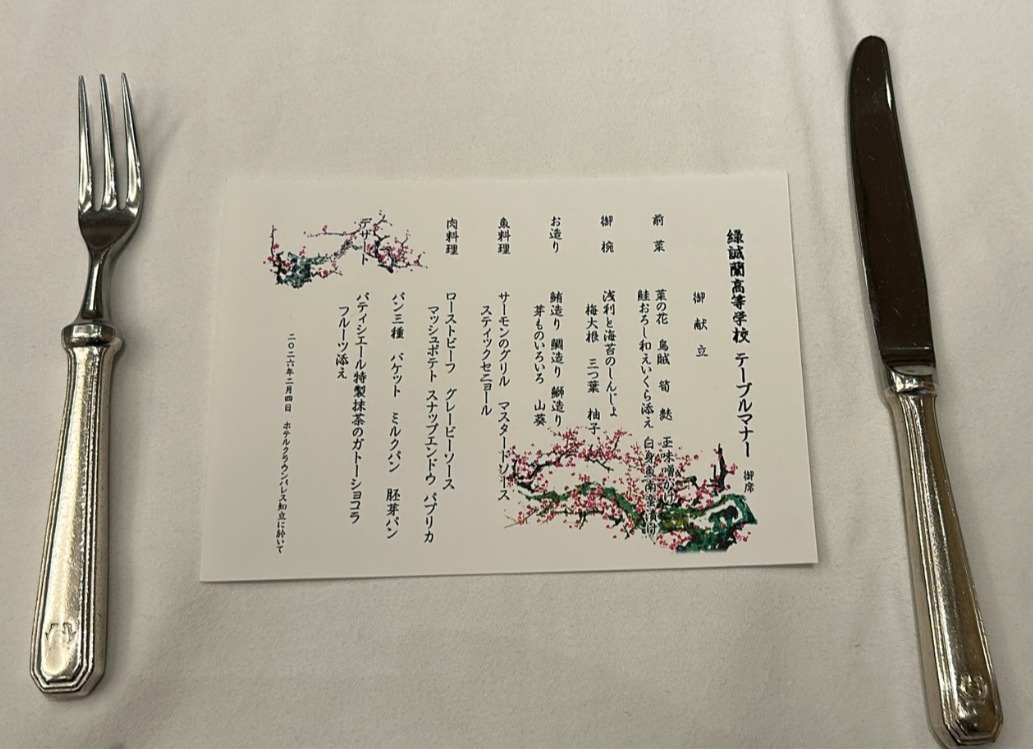 緑誠蘭高等学校 テーブルマナー 御席
御献立
前菜 菜の花 烏賊 筍 麩 玉味噌がけ
鮭おろし和えいくら添え 白身魚南蛮漬け
御椀 浅利と海苔のしんじょ
梅大根 三つ葉 柚子
お造り 鮪造り 鯛造り 鰤造り
芽ものいろいろ 山葵
魚料理 サーモンのグリル マスタードソース
スティックセニョール
肉料理 ローストビーフ グレービーソース
マッシュポテト スナップエンドウ パプリカ
パン三種 バケット ミルクパン 胚芽パン
デザート パティシエール特製抹茶のガトーショコラ
フルーツ添え
二〇二六年二月四日 ホテルクラウンパレス知立に於いて